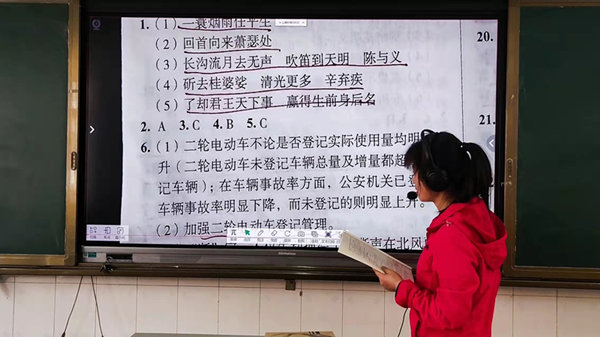 1.(1)一蓑烟雨任平生
(2)回首向来萧瑟处
(3)长沟流月去无声 吹笛到天明 陈与义
(4)斫去桂婆娑 清光更多 辛弃疾
(5)了却君王天下事 赢得生前身后名
2.A 3.C 4.B 5.C
6.(1)二轮电动车不论是否登记实际使用量均明
升(二轮电动车未登记车辆总量及增量都超
记车辆);在车辆事故率方面,公安机关已登
车辆事故率明显下降,而未登记的则明显上升。
(2)加强二轮电动车登记管理。
声在北风
20.
21.